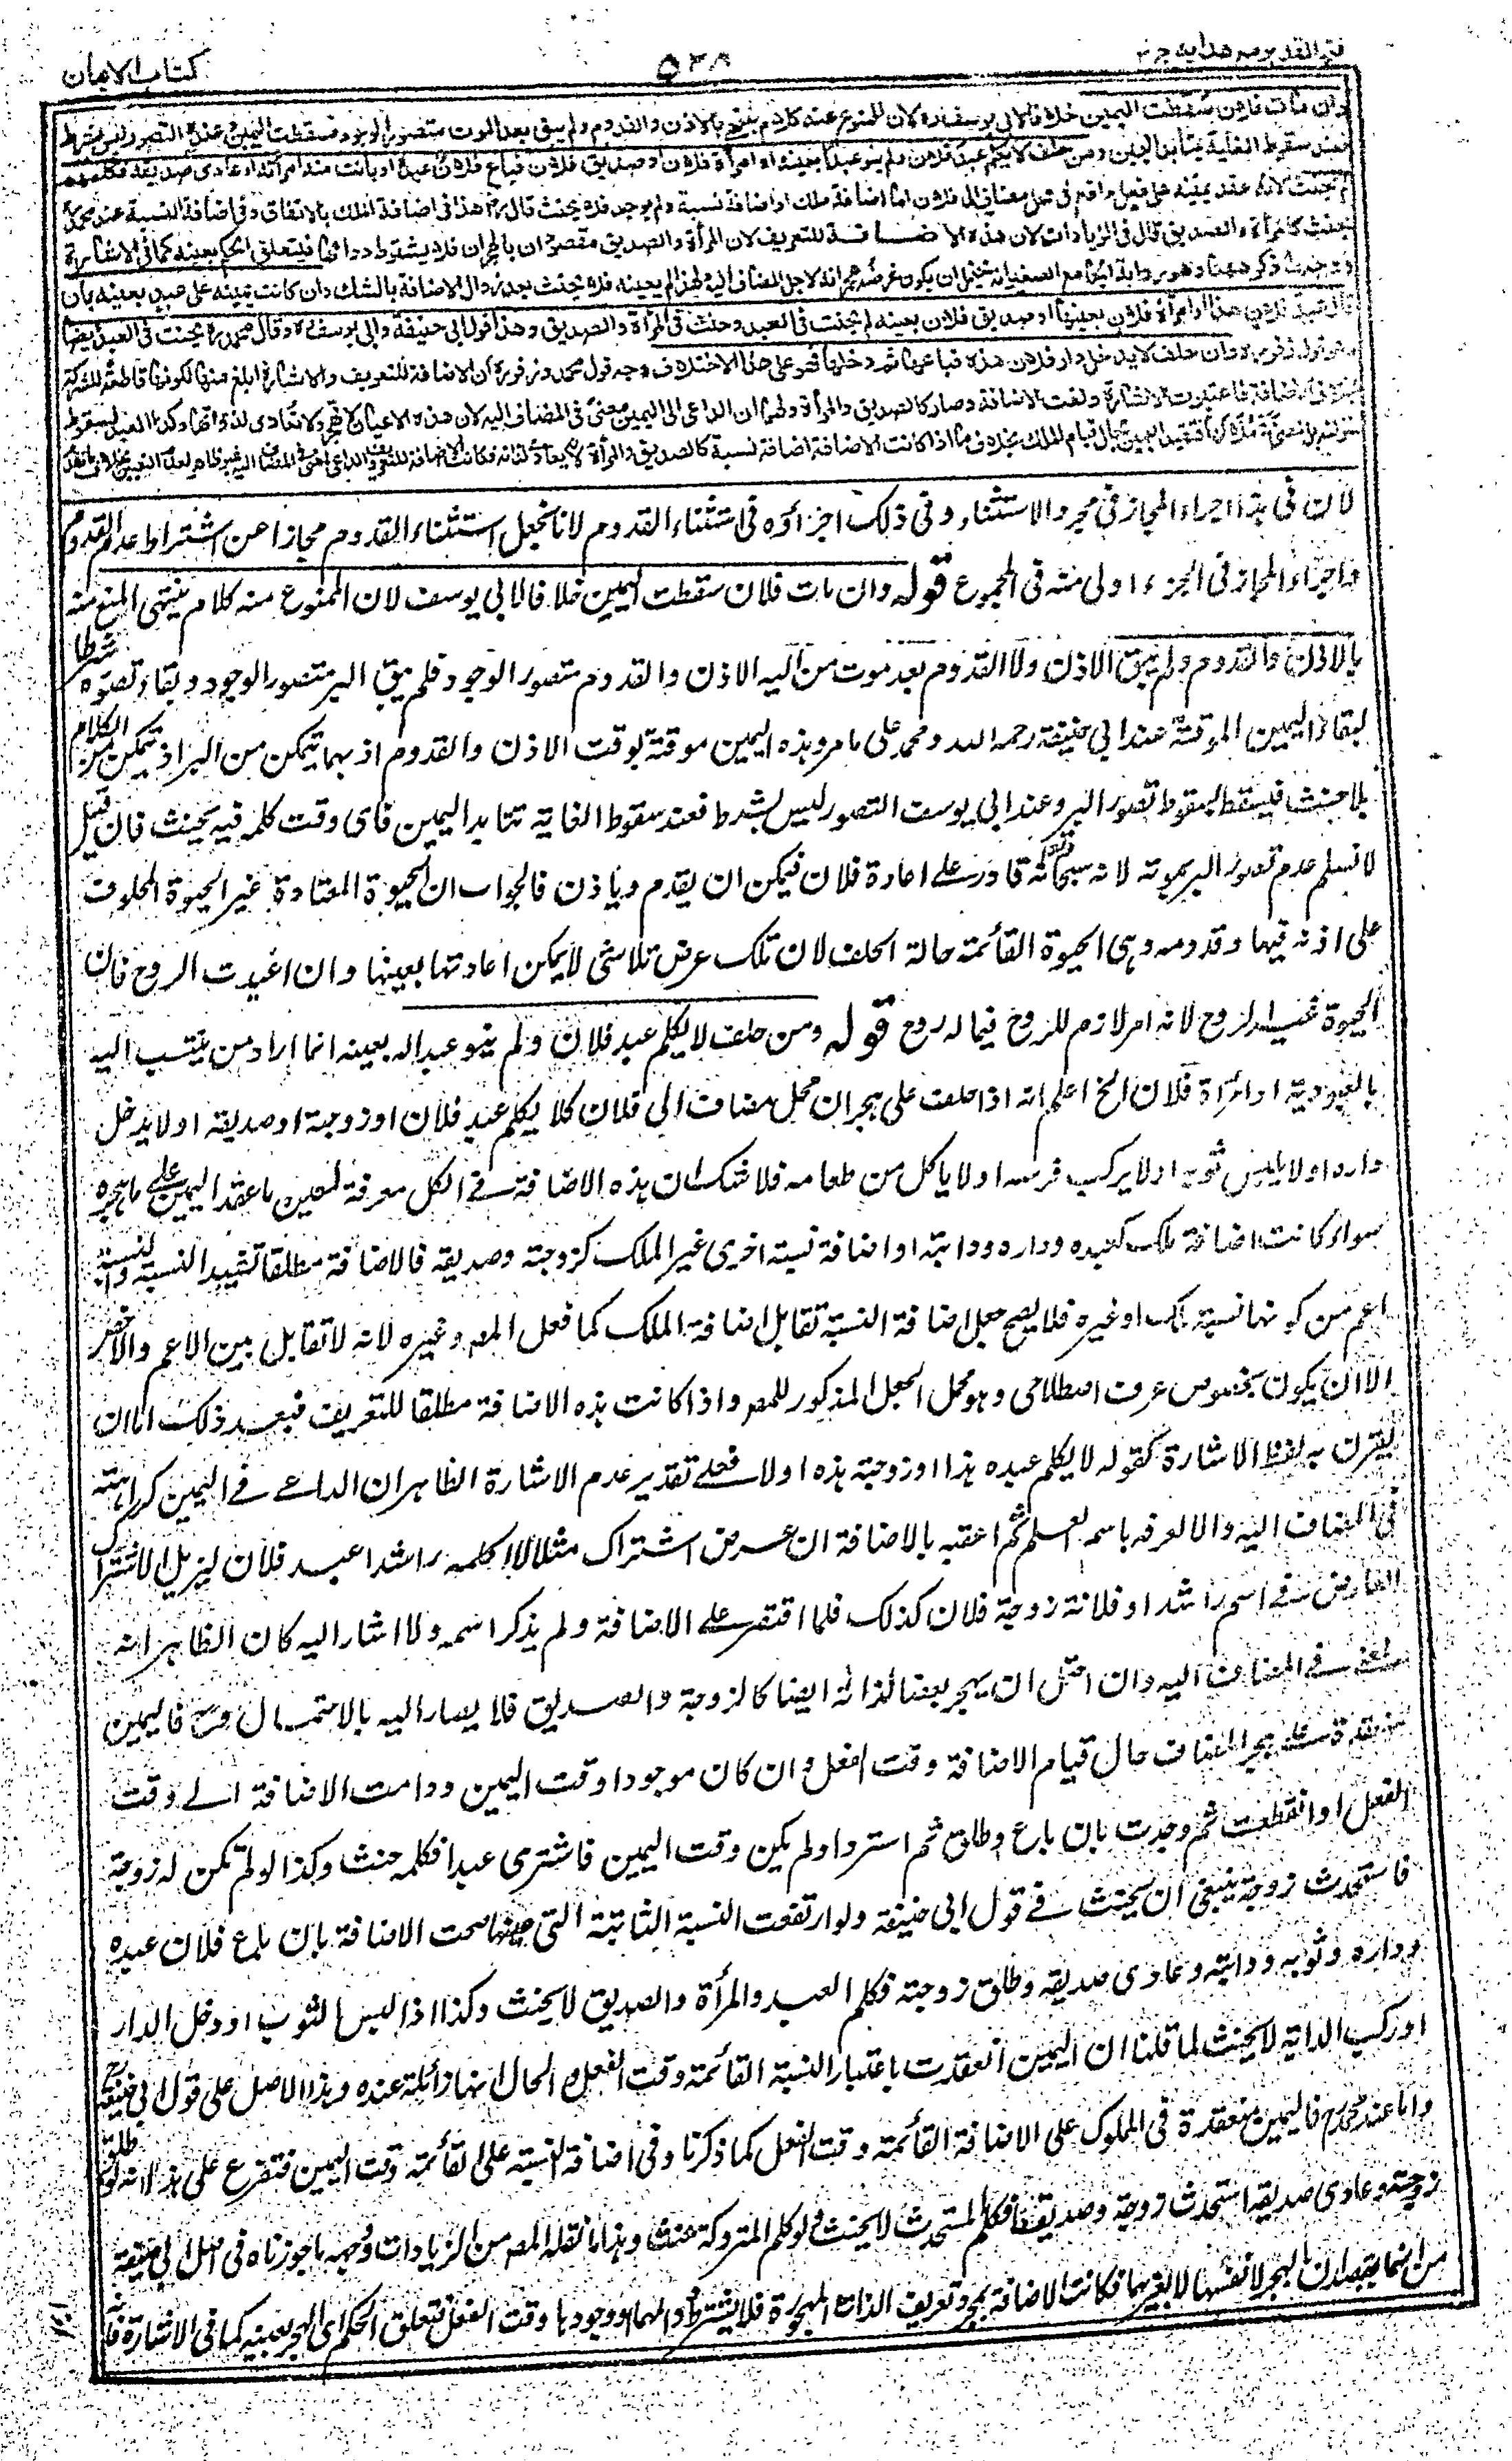 فتح القدير مع هدايه ج ٢
٥٣٨
كتاب الايمان
وان مات فلان سقطت اليمين خلافا لابي يوسف لان الممنوع عنه كلام ينتهي بالاذن والقدوم ولم يبق بعد الموت متصور الوجود فسقطت اليمين وعنده التصور ليس بشرط
فعند سقوط الغاية يتأبد اليمين ومن حلف لا يكلم عبد فلان ولم ينو عبدا بعينه او امرأة فلان او صديق فلان فباع فلان عبده او بانت منه امرأته او عادى صديقه فكلمهم
لم يحنث لانه عقد يمينه على فعل واقع في محل مضاف الى فلان اما اضافة ملك او اضافة نسبة ولم يوجد فلا يحنث قال هذا في اضافة الملك بالاتفاق وفي اضافة النسبة عند محمد
يحنث كالمرأة والصديق قال في الزيادات لان هذه الاضافة للتعريف لان المرأة والصديق مقصودان بالهجران فلا يشترط دوامها فيتعلق الحكم بعينه كما في الاشارة
وجه ما ذكر ههنا وهو رواية الجامع الصغير انه يحتمل ان يكون غرضه هجرانه لاجل المضاف اليه ولهذا لم يعينه فلا يحنث بعد زوال الاضافة بالشك وان كانت يمينه على عبد بعينه بان
قال عبد فلان هذا او امرأة فلان بعينها او صديق فلان بعينه لم يحنث في العبد وحنث في المرأة والصديق وهذا قول ابي حنيفة وابي يوسف وقال محمد يحنث في العبد ايضا
وهو قول زفر وان حلف لا يدخل دار فلان هذه فباعها ثم دخلها فهو على هذا الاختلاف وجه قول محمد وزفر ان الاضافة للتعريف والاشارة ابلغ منها لكونها قاطعة للشركة
بخلاف الاضافة فاعتبرت الاشارة ولغت الاضافة وصار كالصديق والمرأة ولهما ان الداعي الى اليمين معنى في المضاف اليه لان هذه الاعيان لا تهجر ولا تعادى لذواتها وكذا العبد لسقوط
منزلته بل لمعنى في ملاكها فتتقيد اليمين بحال قيام الملك بخلاف ما اذا كانت الاضافة اضافة نسبة كالصديق والمرأة لانه يعادى لذاته فكانت الاضافة للتعريف والداعي لمعنى في المضاف اليه غير ظاهر لعدم التعيين بخلاف ما تقدم
لان في هذا اجراء المجاز في مجرد الاستثناء وفي ذلك اجزاؤه في استثناء القدوم لانا نجعل استثناء القدوم مجازا عن اشتراط عدم القدوم
واجزاء المجاز في الجزء اولى منه في المجموع قوله وان مات فلان سقطت اليمين خلافا لابي يوسف لان الممنوع منه كلام ينتهي المنع منه
بالاذن والقدوم ولم يبق الاذن ولا القدوم بعد موت من اليه الاذن والقدوم متصور الوجود فلم يبق البر متصور الوجود وبقاء تصوره شرط
لبقاء اليمين الموقتة عند ابي حنيفة رحمه الله ومحمد على ما مر وهذه اليمين موقتة بوقت الاذن والقدوم اذ بهما يتمكن من البر اذ يتمكن من الكلام
بلا حنث فيسقط بسقوط تصور البر وعند ابي يوسف التصور ليس بشرط فعند سقوط الغاية تتابد اليمين فاي وقت كلمه فيه يحنث فان قيل
لا نسلم عدم تصور البر بموته لانه سبحانه قادر على اعادة فلان فيمكن ان يقدم وياذن فالجواب ان الحيوة المعتادة غير الحيوة المحلوف
على اذنه فيها وقدومه وهي الحيوة القائمة حالة الحلف لان تلك عرض تلاشى لا يمكن اعادتها بعينها وان اعيدت الروح فان
الحيوة غير الروح لانه امر لازم للروح فيما له روح قوله ومن حلف لا يكلم عبد فلان ولم ينو عبدا له بعينه انما اراد من ينتسب اليه
بالعبودية او امرأة فلان الخ اعلم انه اذا حلف على هجران محل مضاف الى فلان كلا يكلم عبد فلان او زوجته او صديقه او لا يدخل
داره او لا يلبس ثوبه او لا يركب فرسه او لا ياكل من طعامه فلا شك ان هذه الاضافة في الكل معرفة لتعين ما عقد اليمين على هجره
سواء كانت اضافة ملك كعبده وداره ودابته او اضافة نسبة اخرى غير الملك كزوجته وصديقه فالاضافة مطلقا تفيد النسبة والنسبة
اعم من كونها نسبة ملك او غيره فلا يصح جعل اضافة النسبة تقابل اضافة الملك كما فعل المصـ وغيره لانه لا تقابل بين الاعم والاخص
الا ان يكون بخصوص عرف اصطلاحي وهو محمل الجعل المذكور للمصـ واذا كانت هذه الاضافة مطلقا للتعريف فبعد ذلك اما ان
يقرن به لفظ الاشارة كقوله لا يكلم عبده هذا او زوجته هذه او لا فعلى تقدير عدم الاشارة الظاهر ان الداعي في اليمين كراهته
في المضاف اليه والا لعرفه باسمه العلم ثم اعقبه بالاضافة ان عرض اشتراك مثلا لا اكلم راشدا عبد فلان ليزيل الاشتراك
العارض في اسم راشد او فلانة زوجة فلان كذلك فلما اقتصر على الاضافة ولم يذكر اسمه ولا اشار اليه كان الظاهر انه
لمعنى في المضاف اليه وان احتمل ان يهجر بعضا لذاته ايضا كالزوجة والصديق فلا يصار اليه بالاحتمال وح فاليمين
منعقدة على هجر المضاف حال قيام الاضافة وقت الفعل وان كان موجودا وقت اليمين ودامت الاضافة الى وقت
الفعل او انقطعت ثم وجدت بان باع وطلق ثم استرد او لم يكن وقت اليمين فاشترى عبدا فكلمه حنث وكذا لو لم تكن له زوجة
فاستحدث زوجة ينبغي ان يحنث في قول ابي حنيفة ولو ارتفعت النسبة الثابتة التي صححت الاضافة بان باع فلان عبده
وداره وثوبه ودابته وعادى صديقه وطلق زوجته فكلم العبد والمرأة والصديق لا يحنث وكذا اذا لبس الثوب او دخل الدار
او ركب الدابة لا يحنث لما قلنا ان اليمين انعقدت باعتبار النسبة القائمة وقت الفعل والحال انها زائلة عنده وهذا الاصل على قول ابي حنيفة رح
واما عند محمد رح فاليمين منعقدة في المملوك على الاضافة القائمة وقت الفعل كما ذكرنا وفي اضافة النسبة على القائمة وقت اليمين فتفرع على هذا انه لو طلق
زوجته وعادى صديقه استحدث زوجة وصديقا فكلم المستحدث لا يحنث ولو كلم المتروكة حنث وهذا ما نقله المصـ من الزيادات وجهه ما جوزناه في اصل ابي حنيفة
من انهما يقصدان بالهجر لانفسهما لا لغيرهما فكانت الاضافة لمجرد تعريف الذات المهجورة فلا يشترط دوامها ووجودها وقت الفعل فتعلق الحكم اي الهجر بعينه كما في الاشارة فانه